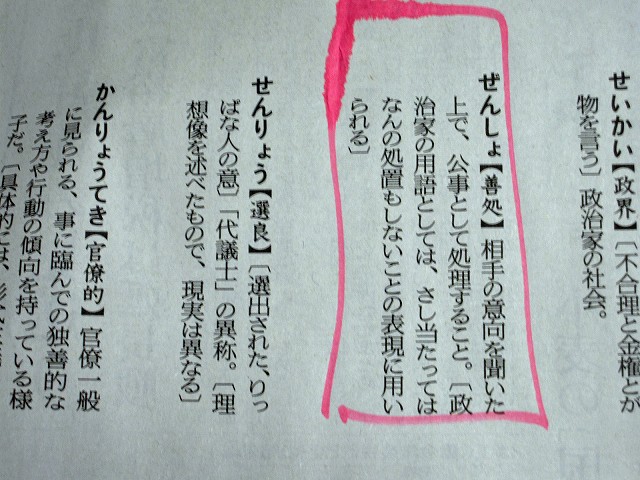 せいかい【政界】〔不合理と金権とが
物を言う〕政治家の社会。
ぜんしょ【善処】相手の意向を聞いた
上で、公事として処理すること。〔政
治家の用語としては、さし当たっては
なんの処置もしないことの表現に用い
られる〕
せんりょう【選良】〔選出された、りっ
ぱな人の意〕「代議士」の異称。〔理
想像を述べたもので、現実は異なる〕
かんりょうてき【官僚的】官僚一般
に見られる、事に臨んでの独善的な
考え方や行動の傾向を持っている様
子だ。〔具体的には、